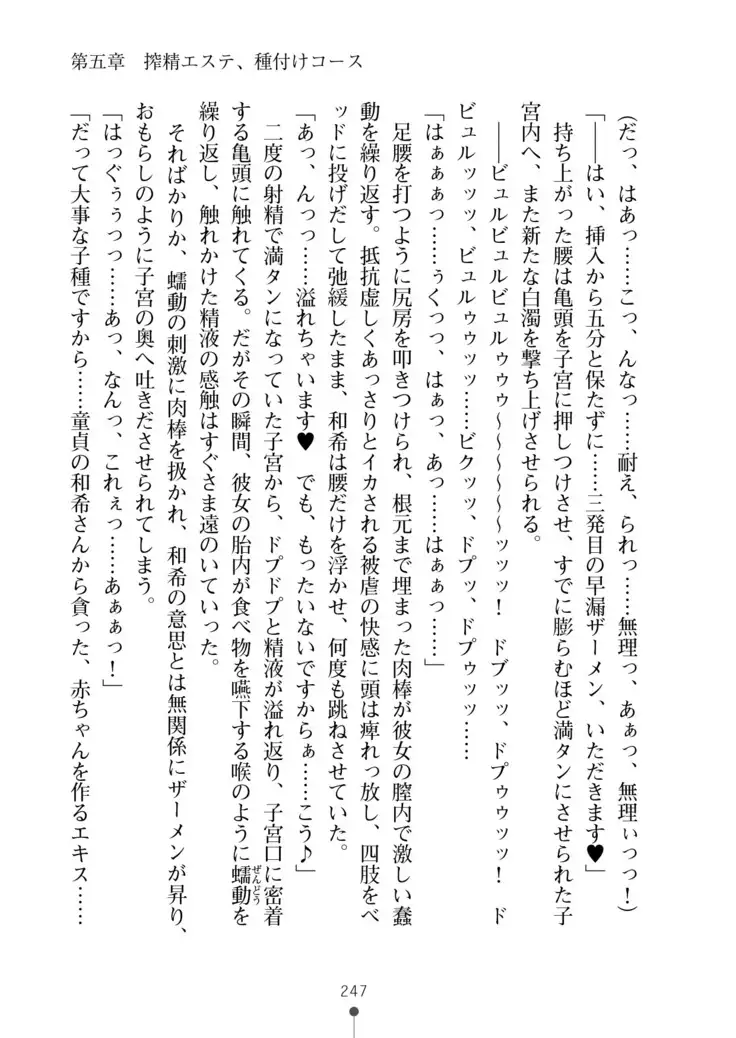 第五章　搾精エステ、種付けコース
(だっ、はあっ……こっ、んなっ……耐え、られっ……無理っ、あぁっ、無理ぃっっ！)
「――はい、挿入から五分と保たずに……三発目の早漏ザーメン、いただきます♥」
持ち上がった腰は亀頭を子宮に押しつけさせ、すでに膨らむほど満タンにさせられた子
宮内へ、また新たな白濁を撃ち上げさせられる。
――ビュルビュルビュルゥゥゥ～～～～～～ッッッ！　ドブッッ、ドプゥゥッッ！　ド
ビュルッッッ、ビュルゥゥッッ……ビクッッ、ドプッ、ドプゥッッ……
「はぁぁぁっ……ぅくっっ、はぁっ、あっ……はぁぁっ……」
足腰を打つように尻房を叩きつけられ、根元まで埋まった肉棒が彼女の膣内で激しい蠢
動を繰り返す。抵抗虚しくあっさりとイカされる被虐の快感に頭は痺れっ放し、四肢をベ
ッドに投げだして弛緩したまま、和希は腰だけを浮かせ、何度も跳ねさせていた。
「あっ、んっっ……溢れちゃいます♥　でも、もったいないですからぁ……こう♪」
二度の射精で満タンになっていた子宮から、ドプドプと精液が溢れ返り、子宮口に密着
する亀頭に触れてくる。だがその瞬間、彼女の胎内が食べ物を嚥下する喉のように蠕動を
ぜんどう
繰り返し、触れかけた精液の感触はすぐさま遠のいていった。
そればかりか、蠕動の刺激に肉棒を扱かれ、和希の意思とは無関係にザーメンが昇り、
おもらしのように子宮の奥へ吐きださせられてしまう。
「はっぐぅぅっっ……あっ、なんっ、これぇっ……あぁぁっ！」
「だって大事な子種ですから……童貞の和希さんから貪った、赤ちゃんを作るエキス……
247